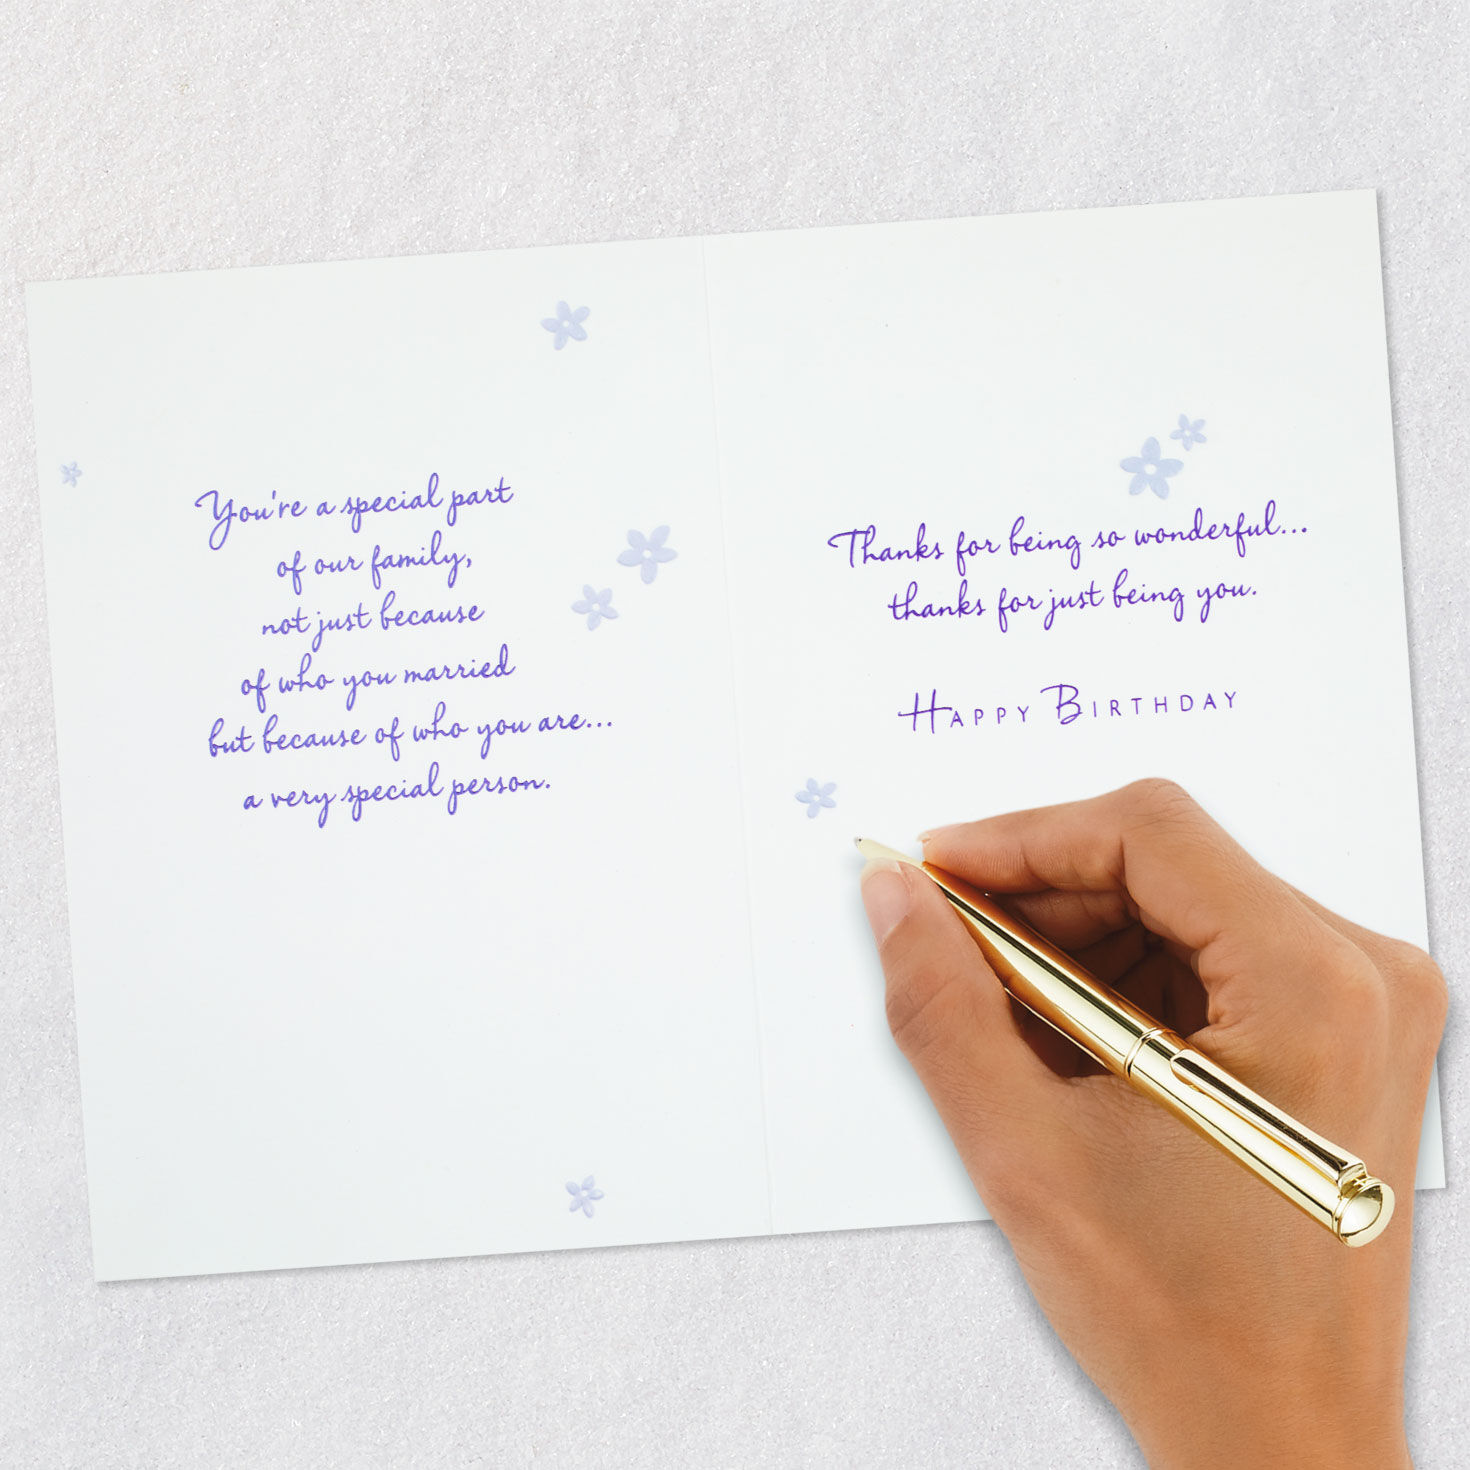 You're a special part
of our family,
not just because
of who you married
but because of who you are...
a very special person.
Thanks for being so wonderful...
thanks for just being you.
HAPPY BIRTHDAY